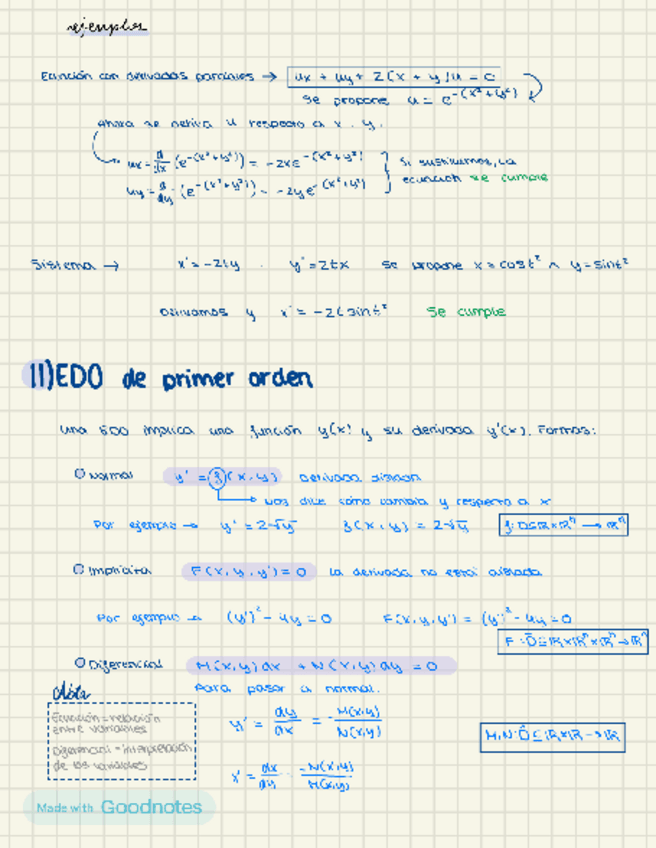 ejemplos
Ecuación con derivadas parciales → ux + uy + 2(x + y)u = 0
se propone u = e^-(x²+y²)
Ahora se deriva u respecto a x y.
ux = d/dx (e^-(x²+y²)) = -2xe^-(x²+y²) } Si sustituimos, la
uy = d/dy (e^-(x²+y²)) = -2ye^-(x²+y²) ecuación se cumple
Sistema → x' = -2ty . y' = 2tx se propone x = cost² ∧ y = sint²
Derivamos y x' = -2tsint² Se cumple
II) EDO de primer orden
Una EDO implica una función y(x) y su derivada y'(x). Formas:
Normal y' = f(x,y) derivada aislada
nos dice cómo cambia y respecto a x
Por ejemplo → y' = 2√y f(x,y) = 2√y f: D⊆ℝ×ℝⁿ → ℝⁿ
Implícita F(x,y,y') = 0 La derivada no está aislada
Por ejemplo → (y')² - 4y = 0 F(x,y,y') = (y')² - 4y = 0
F: D⊆ℝ×ℝⁿ×ℝⁿ→ℝⁿ
Diferencial M(x,y)dx + N(x,y)dy = 0
Nota Para pasar a normal.
Ecuación = relación
entre variables
Diferencial = interpretación
de las variables
y' = dy/dx = - M(x,y)/N(x,y)
M,N: D⊆ℝ×ℝ→ℝ
x' = dx/dy = -N(x,y)/M(x,y)
Made with Goodnotes